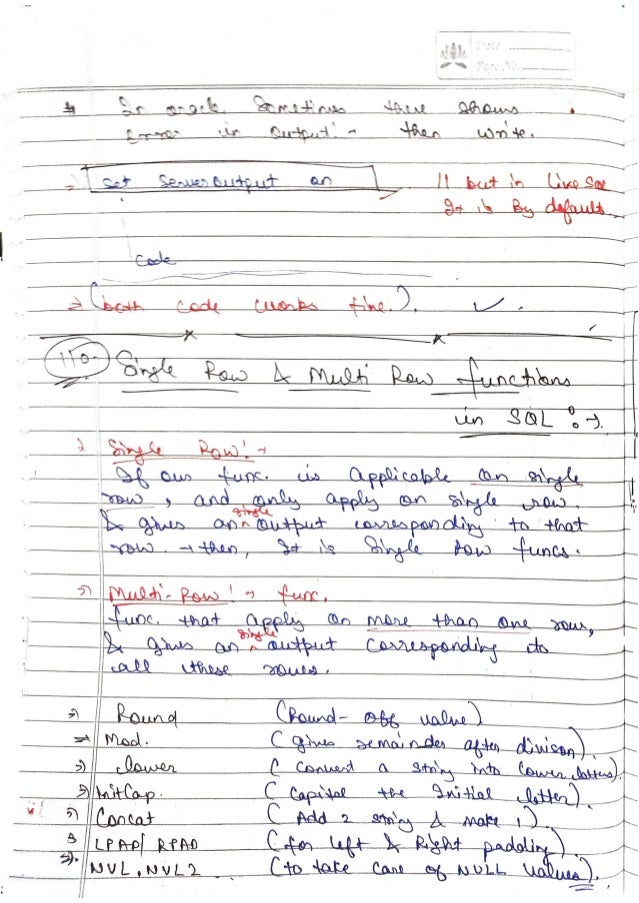 Date
Page No.
* In oracle Sometimes there shows
Error in Output :- then write.
=> set serveroutput on // but in Live SQL
It is By default
Code
=> (both code works fine.). ✓.
110. Single Row & Multi Row functions
in SQL :->.
=> Single Row! ->
If our func. is applicable on single
row, and only apply on single row.
& gives an single output corresponding to that
row. -> then, It is Single Row funcs.
=> Multi-Row! -> func.
func. that apply on more than one rows,
& gives an single output corresponding to
all these rows.
=> Round (Round-off value)
=> Mod. (gives remainder after divison).
=> lower (Convert a string into lower letters).
=> InitCap. (Capital the Initial letter).
=> Concat (Add 2 string & make 1).
=> LPAD/ RPAD (for left & Right padding).
=>. NVL, NVL2 (to take care of NULL values).